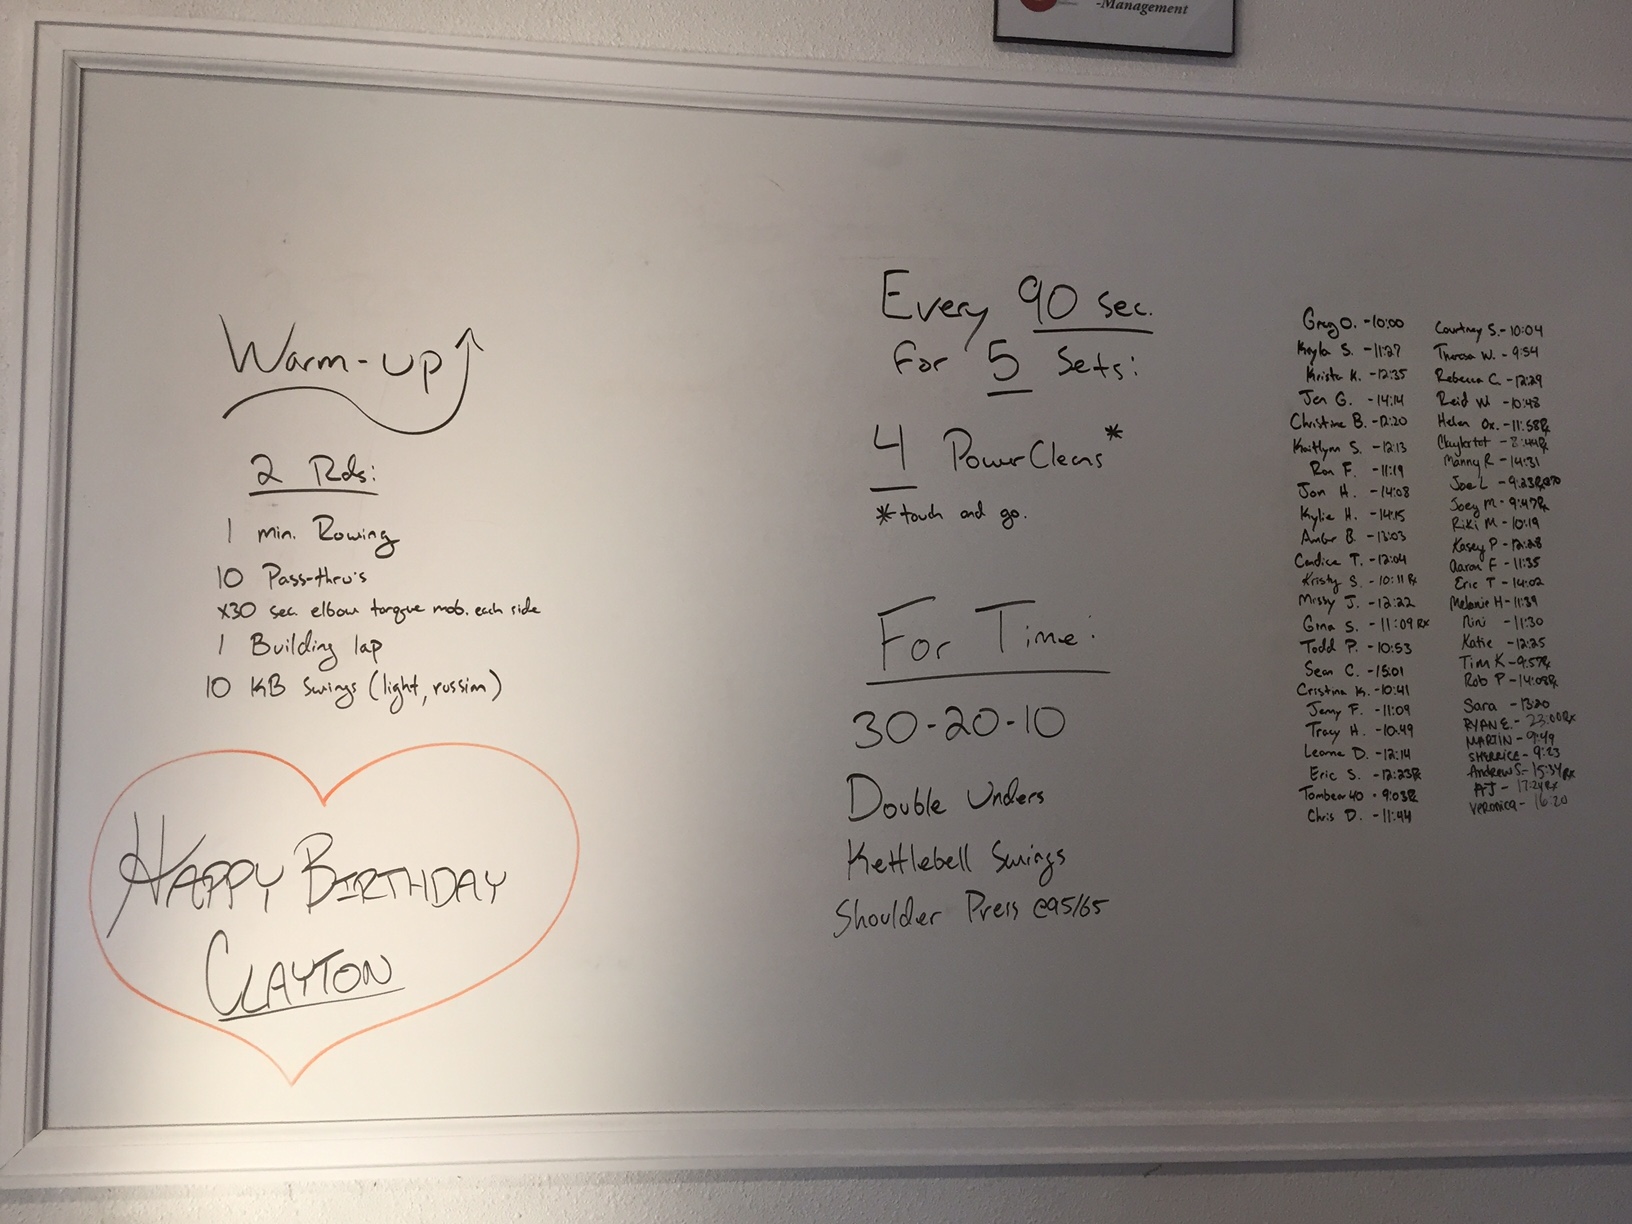 -Management
Warm-up
2 Rds:
1 min. Rowing
10 Pass-thru's
x30 sec. elbow torque mob. each side
1 Building lap
10 KB Swings (light, russian)
HAPPY BIRTHDAY
CLAYTON
Every 90 sec.
for 5 Sets:
4 Power Cleans*
*touch and go.
For Time:
30-20-10
Double Unders
Kettlebell Swings
Shoulder Press @95/65
Greg O. -10:00
Kayla S. -11:27
Krista K. -12:35
Jen G. -14:14
Christine B. -12:20
Kaitlynn S. -12:13
Ron F. -11:19
Jon H. -14:08
Kylie H. -14:15
Amber B. -13:03
Candice T. -12:04
Kristy S. -10:11 Rx
Missy J. -12:22
Gina S. -11:09 Rx
Todd P. -10:53
Sean C. -15:01
Cristina K. -10:41
Jenny F. -11:09
Tracy H. -10:49
Leanne D. -12:14
Eric S. -12:23 Rx
Tombear40 - 9:03 Rx
Chris D. -11:44
Courtney S. -10:04
Theresa W. - 9:54
Rebecca C. -12:29
Reid W -10:48
Helen Ox. -11:58 Rx
Manny R -14:31
Joe L - 9:23
Joey M - 9:47 Rx
Riki M -10:19
Kasey P -12:28
Aaron F -11:35
Eric T -14:02
Melanie H -11:39
Nini -11:30
Katie -12:25
Tim K -9:57 Rx
Rob P -14:08 Rx
Sara -13:20
RYAN E. - 23:00 Rx
MARTIN - 9:49
SHERRICE - 9:23
Andrew S. - 15:34 Rx
AJ - 17:24 Rx
VERONICA - 16:20